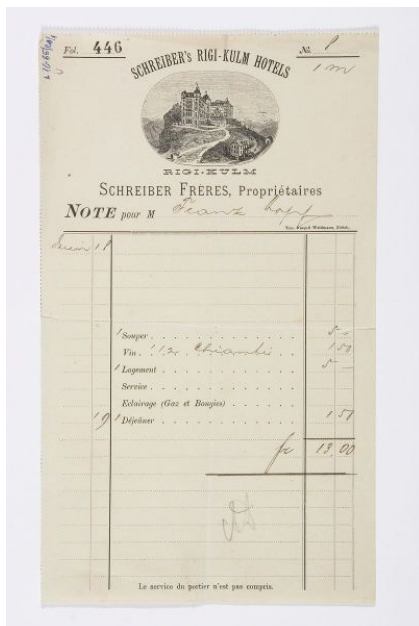 Fol. 446 No. 8
SCHREIBER'S RIGI-KULM HOTELS
RIGI-KULM
SCHREIBER FRÈRES, Propriétaires
NOTE pour M Franz
18
1 Souper 5 —
Vin 1/2 Chianti 1 50
1 Logement 5 —
Service
Eclairage (Gaz et Bougies)
19 1 Déjeûner 1 50
fr 13.00
Le service du portier n'est pas compris.